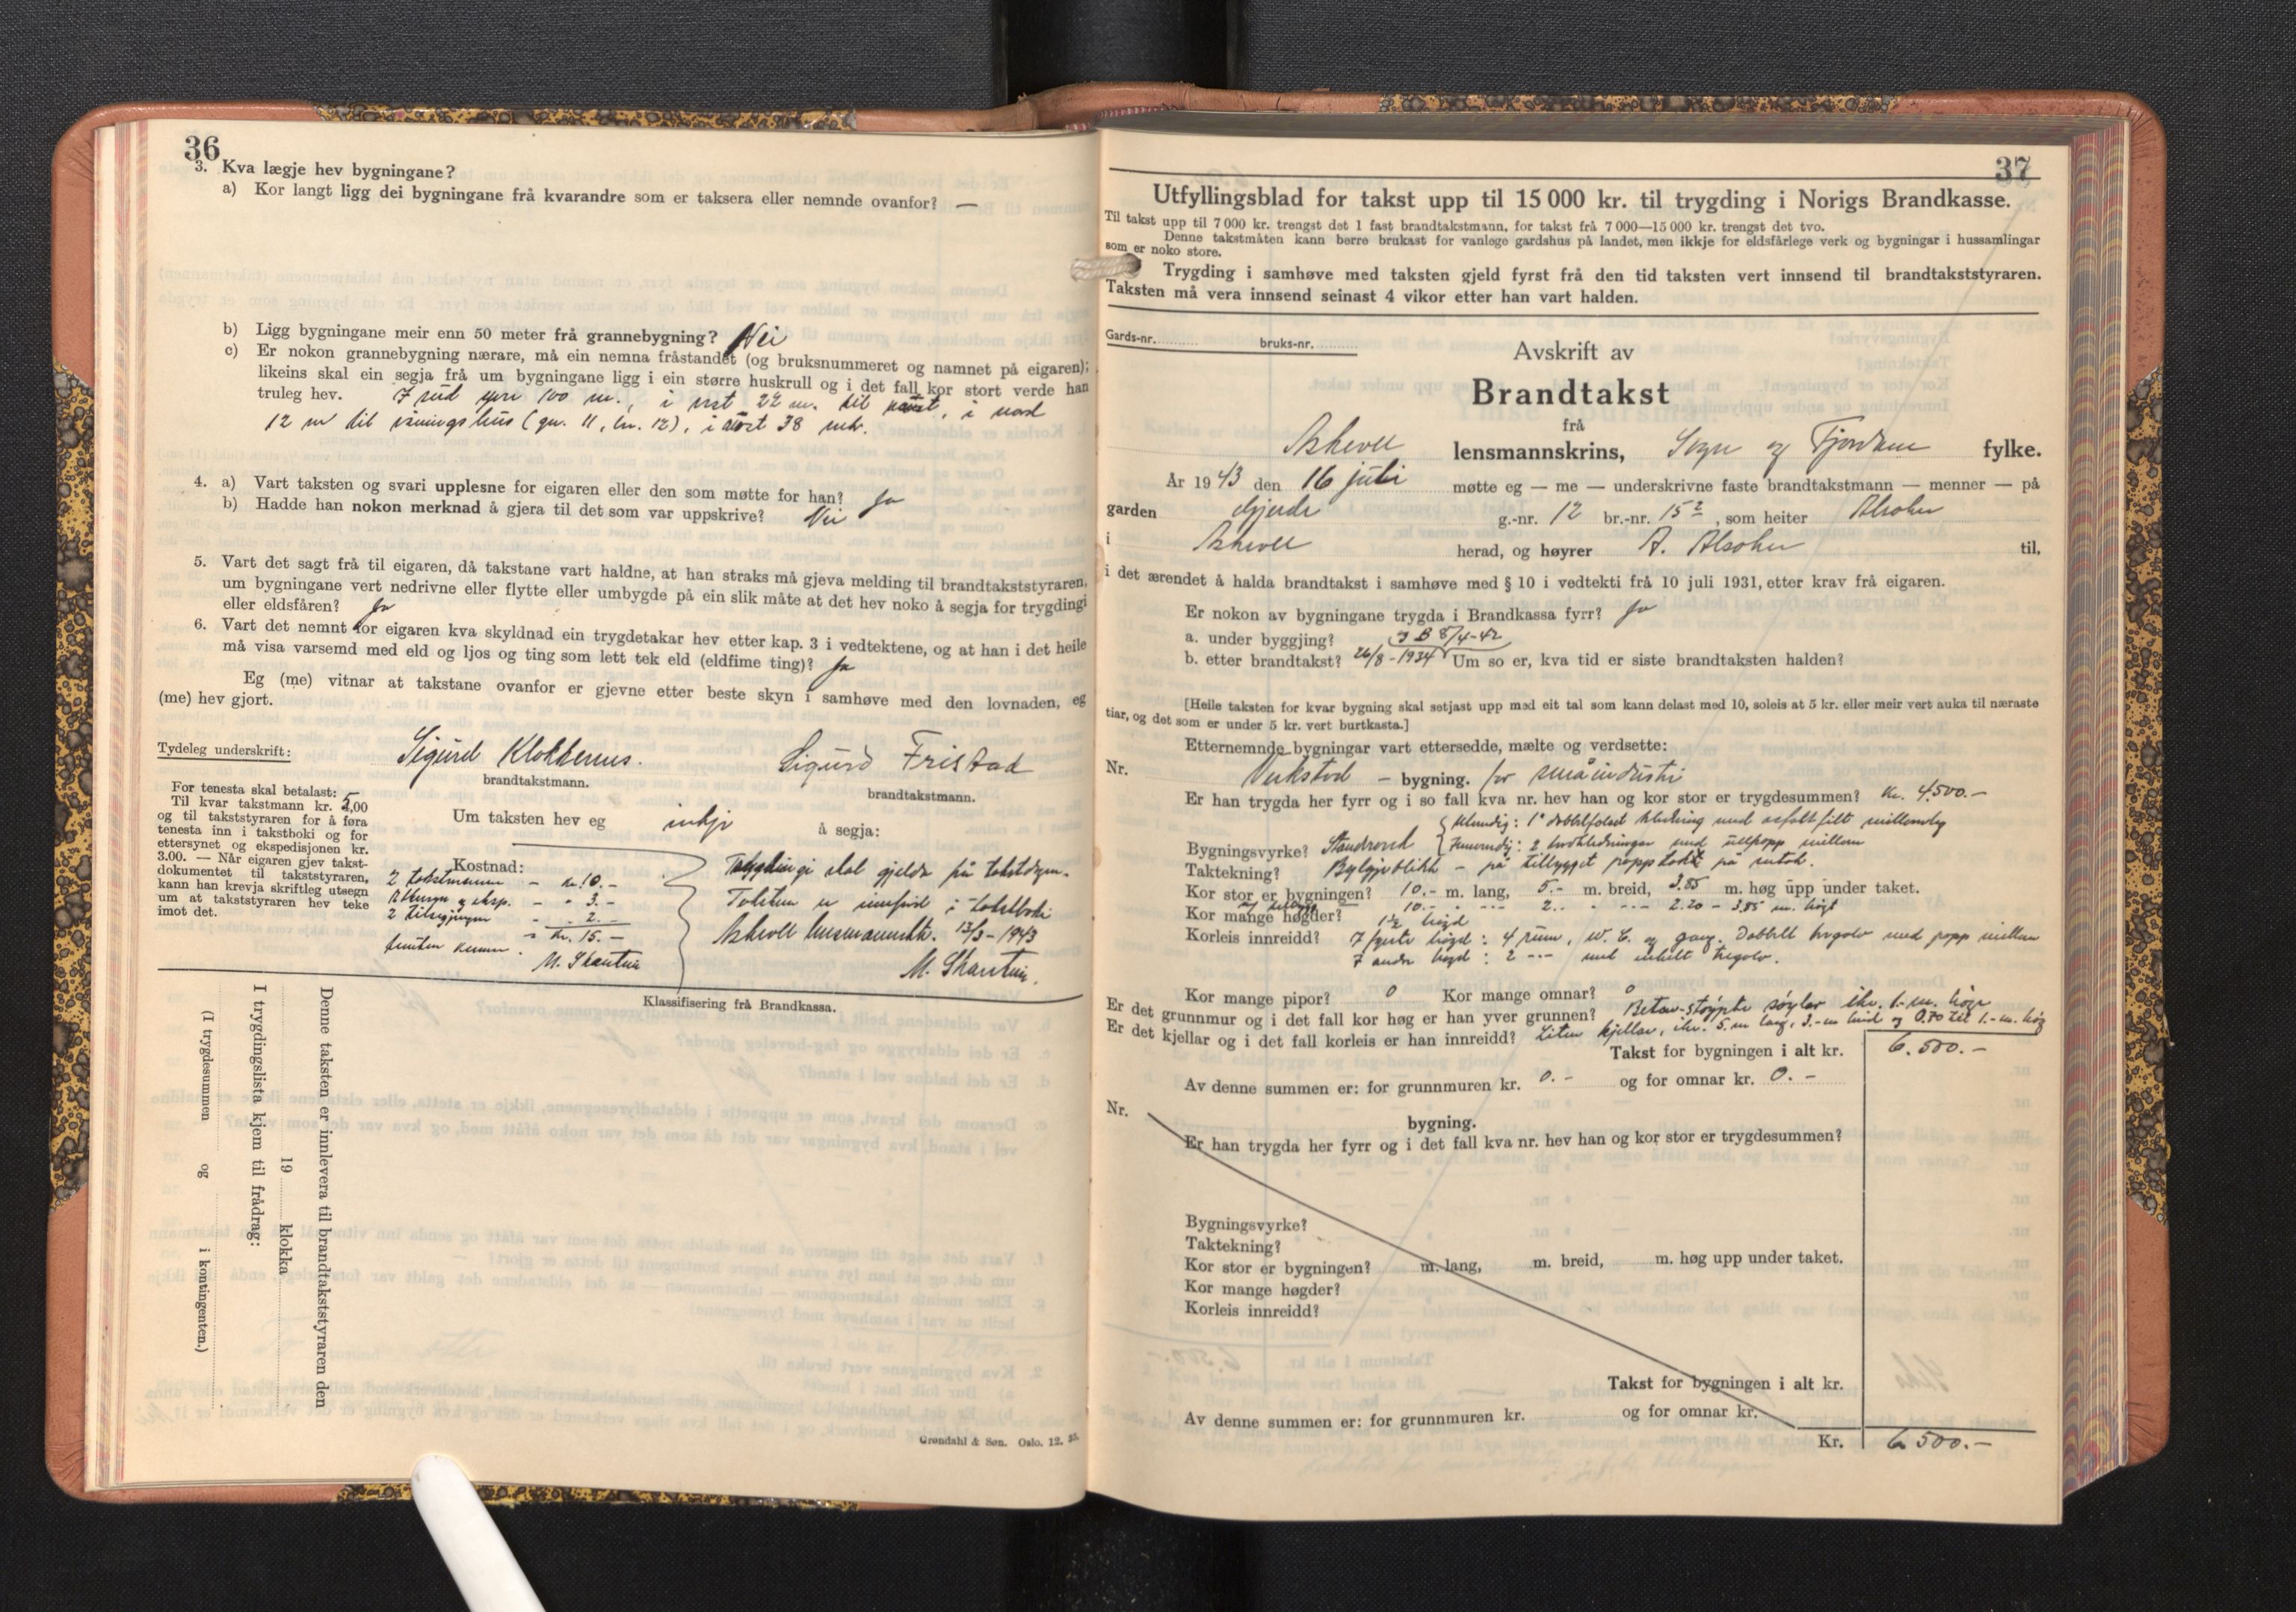 36
3. Kva lægje hev bygningane?
a) Kor langt ligg dei bygningane frå kvarandre som er taksera eller nemnde ovanfor? —
b) Ligg bygningane meir enn 50 meter frå grannebygning? Nei
c) Er nokon grannebygning nærare, må ein nemna fråstandet (og bruksnummeret og namnet på eigaren);
likeins skal ein segja frå um bygningane ligg i ein større huskrull og i det fall kor stort verde han
truleg hev. I sud yvi 100 m., i vest 22 m. til naust, i nord
12 m til våningshus (gn. 11, bn. 12), i aust 38 mtr.
4. a) Vart taksten og svari upplesne for eigaren eller den som møtte for han? Ja
b) Hadde han nokon merknad å gjera til det som var uppskrive? Nei
5. Vart det sagt frå til eigaren, då takstane vart haldne, at han straks må gjeva melding til brandtakststyraren,
um bygningane vert nedrivne eller flytte eller umbygde på ein slik måte at det hev noko å segja for trygdingi
eller eldsfåren? Ja
6. Vart det nemnt for eigaren kva skyldnad ein trygdetakar hev etter kap. 3 i vedtektene, og at han i det heile
må visa varsemd med eld og ljos og ting som lett tek eld (eldfime ting)? Ja
Eg (me) vitnar at takstane ovanfor er gjevne etter beste skyn i samhøve med den lovnaden, eg
(me) hev gjort.
Tydeleg underskrift: Sigurd Klokkernes. Sigurd Fristad
brandtakstmann. brandtakstmann.
For tenesta skal betalast:
Til kvar takstmann kr. 5,00
og til takststyraren for å føra
tenesta inn i takstboki og for
ettersynet og ekspedisjonen kr.
3.00. — Når eigaren gjev takst-
dokumentet til takststyraren,
kann han krevja skriftleg utsegn
um at takststyraren hev teke
imot det.
Um taksten hev eg inkje å segja:
Kostnad:
2 takstmenn - kr. 10.-
Ettersyn og eksp. - " 3.-
2 tilsegjingar - " 2.-
femten kroner = Kr. 15.-
M. Skantun
Trygdingi skal gjelde frå takstdagen.
Taksten er innførd i takstboki
Askvoll lensmannsktr. 13/8-1943
M. Skantun.
Klassifisering frå Brandkassa.
Denne taksten er innlevera til brandtakststyraren den
19 klokka
I trygdingslista kjem til frådrag:
(I trygdesummen og i kontingenten.)
Grøndahl & Søn. Oslo. 12. 35.
37
Utfyllingsblad for takst upp til 15 000 kr. til trygding i Norigs Brandkasse.
Til takst upp til 7 000 kr. trengst det 1 fast brandtakstmann, for takst frå 7 000—15 000 kr. trengst det tvo.
Denne takstmåten kann berre brukast for vanlege gardshus på landet, men ikkje for eldsfårlege verk og bygningar i hussamlingar
som er noko store.
Trygding i samhøve med taksten gjeld fyrst frå den tid taksten vert innsend til brandtakststyraren.
Taksten må vera innsend seinast 4 vikor etter han vart halden.
Gards-nr. bruks-nr.
Avskrift av
Brandtakst
frå
Askvoll lensmannskrins, Sogn og Fjordane fylke.
År 1943 den 16 juli møtte eg — me — underskrivne faste brandtakstmann — menner — på
garden Gjerde g.-nr. 12 br.-nr. 15², som heiter Alsaker
i Askvoll herad, og høyrer A. Alsaker til,
i det ærendet å halda brandtakst i samhøve med § 10 i vedtekti frå 10 juli 1931, etter krav frå eigaren.
Er nokon av bygningane trygda i Brandkassa fyrr? Ja
a. under byggjing? J B 8/4-42
b. etter brandtakst? 26/8-1934 Um so er, kva tid er siste brandtaksten halden?
[Heile taksten for kvar bygning skal setjast upp med eit tal som kann delast med 10, soleis at 5 kr. eller meir vert auka til næraste
tiar, og det som er under 5 kr. vert burtkasta.]
Etternemnde bygningar vart ettersedde, mælte og verdsette:
Nr. Verkstad - bygning. for småindustri
Er han trygda her fyrr og i so fall kva nr. hev han og kor stor er trygdesummen? Kr. 4.500.-
Utvendig: 1" dobbelfalset kledning med asfaltfilt millomlag
Bygningsvyrke? Standverk Innvendig: 2 bordkledningar med ullpapp millom
Taktekning? Bylgjeblikk - på tilbygget papptekt på sutak.
Kor stor er bygningen? 10.- m. lang, 5.- m. breid, 3.85 m. høg upp under taket.
og tilbygg 10.- " --- 2.. " --- 2.20 - 3.85 m. høgt
Kor mange høgder? 1½ høgd
Korleis innreidd? I fyrste høgd: 4 rum, W.C. og gang. Dobbelt tregolv med papp millom
I andre høgd: 2 --- med enkelt tregolv.
Kor mange pipor? 0 Kor mange omnar? 0
Er det grunnmur og i det fall kor høg er han yver grunnen? Beton-støypte søylar ikr. 1.-m. høge
Er det kjellar og i det fall korleis er han innreidd? Liten kjellar, ikr. 5 m lang, 3.-m breid og 0,70 til 1.-m. høg
Takst for bygningen i alt kr. 6.500.-
Av denne summen er: for grunnmuren kr. 0.- og for omnar kr. 0.-
Nr. bygning.
Er han trygda her fyrr og i det fall kva nr. hev han og kor stor er trygdesummen?
Bygningsvyrke?
Taktekning?
Kor stor er bygningen? m. lang, m. breid, m. høg upp under taket.
Kor mange høgder?
Korleis innreidd?
Takst for bygningen i alt kr.
Av denne summen er: for grunnmuren kr. og for omnar kr.
Kr. 6.500.-